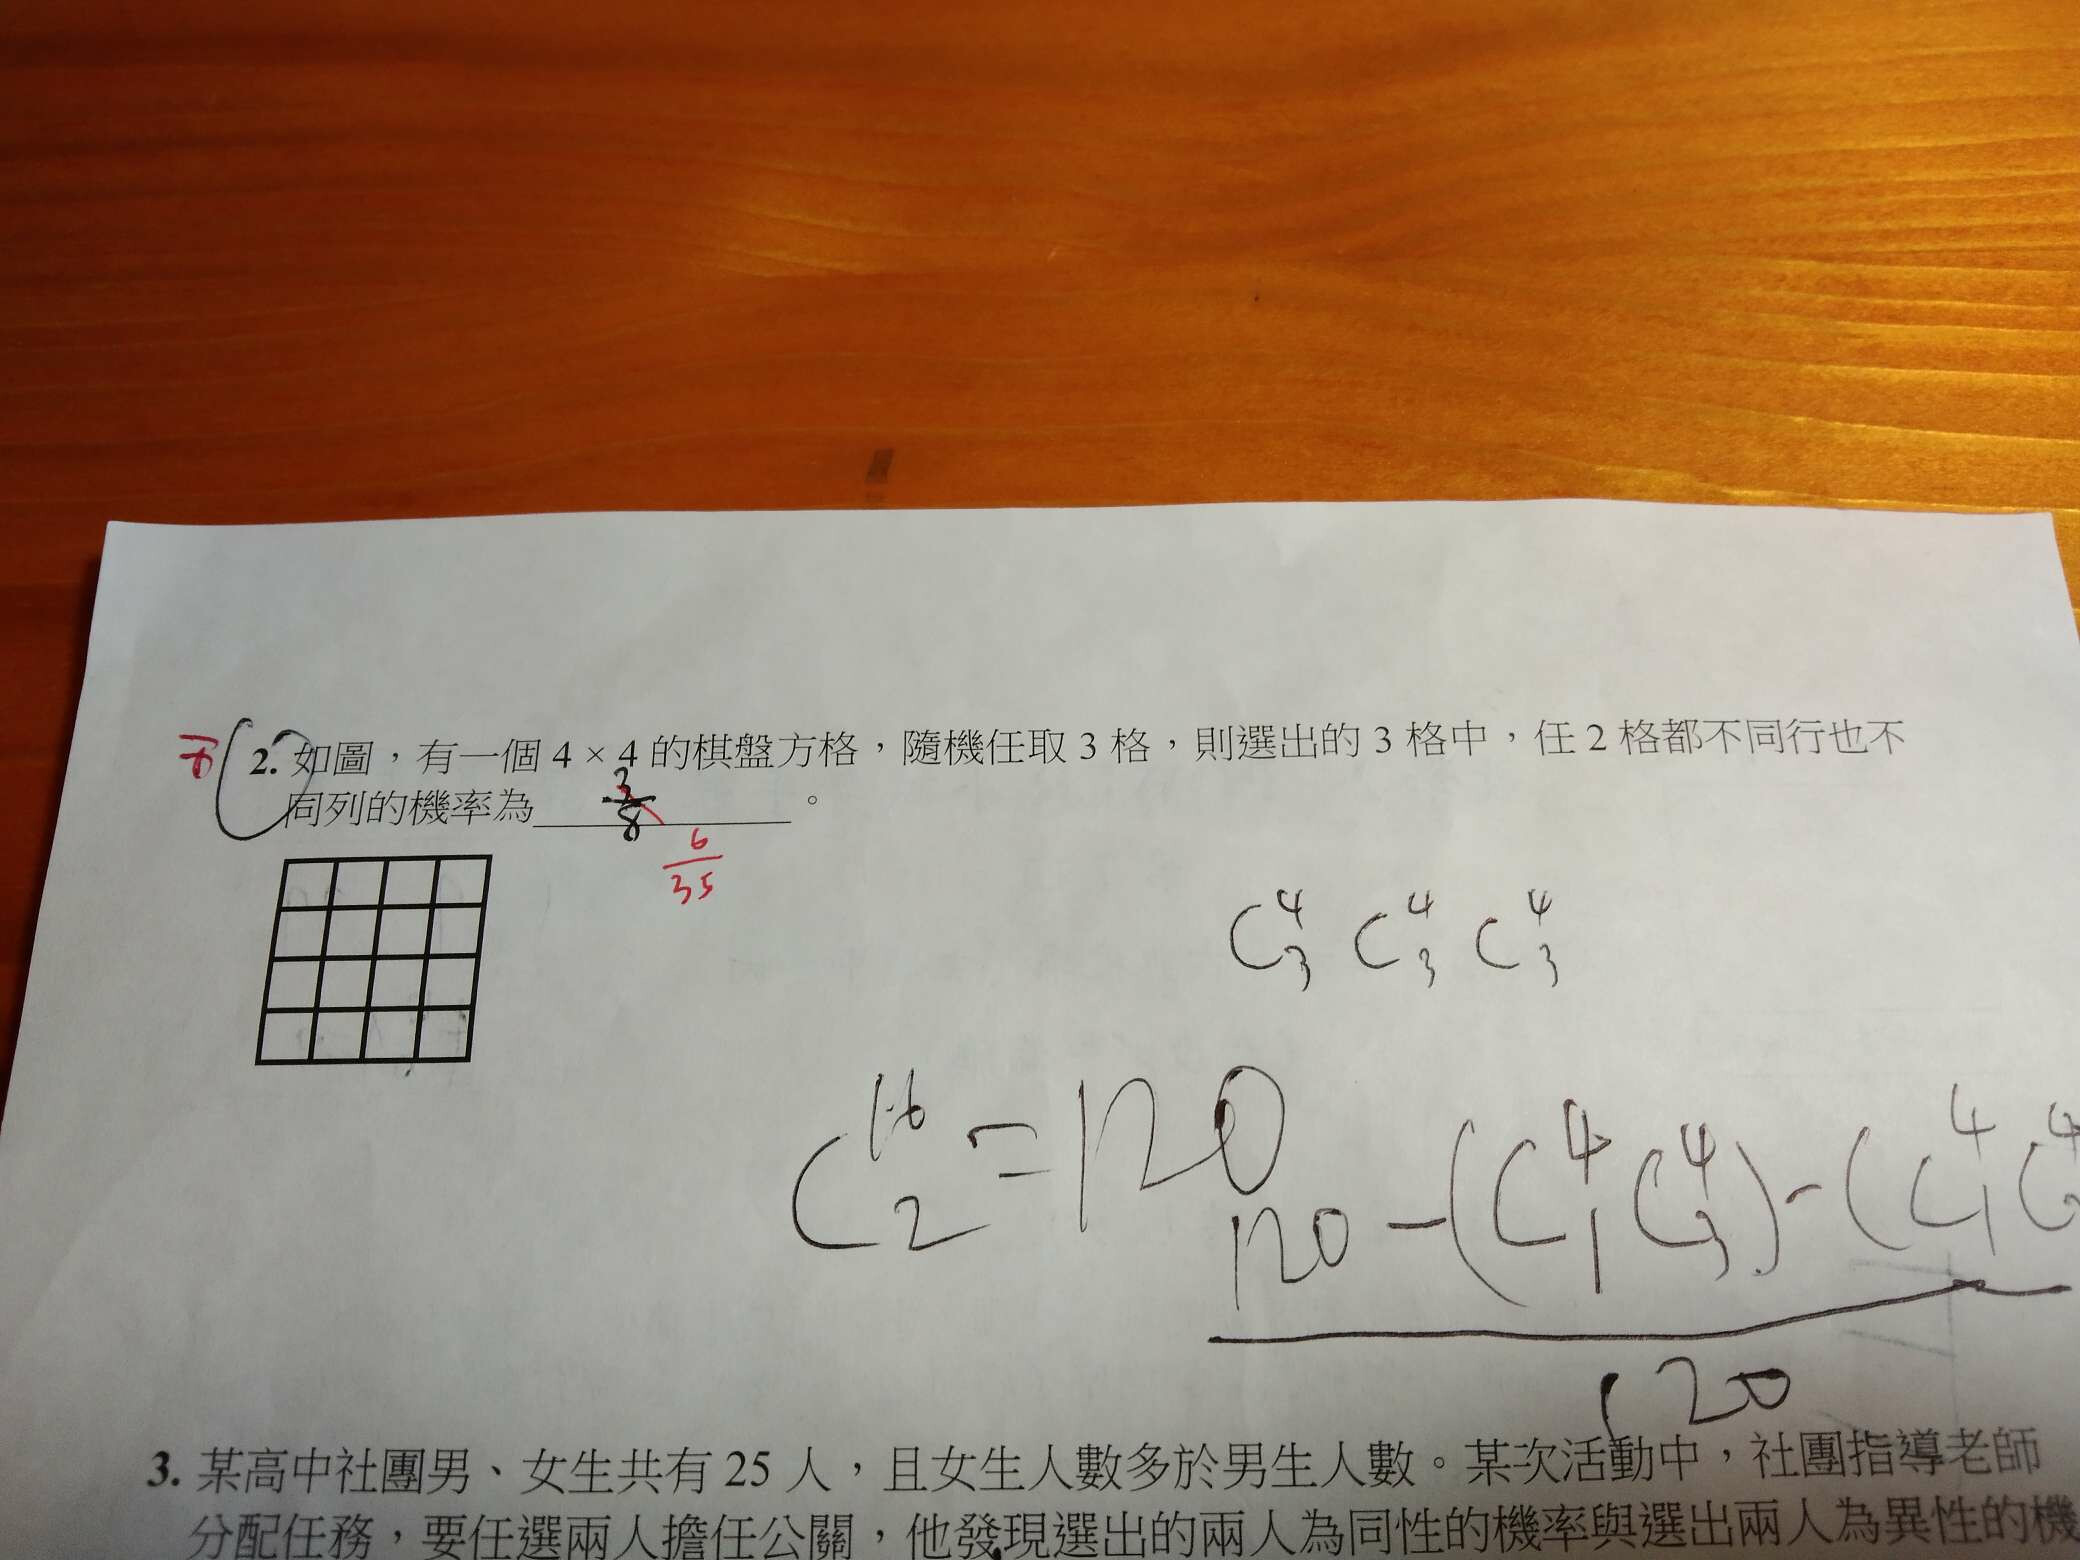 2. 如圖，有一個 4 × 4 的棋盤方格，隨機任取 3 格，則選出的 3 格中，任 2 格都不同行也不
同列的機率為 3/8 。
6/35
C⁴₃ C⁴₃ C⁴₃
C¹⁶₂ = 120
120 - (C⁴₁ C⁴₃) - (C⁴₁ C⁴
120
3. 某高中社團男、女生共有 25 人，且女生人數多於男生人數。某次活動中，社團指導老師
分配任務，要任選兩人擔任公關，他發現選出的兩人為同性的機率與選出兩人為異性的機